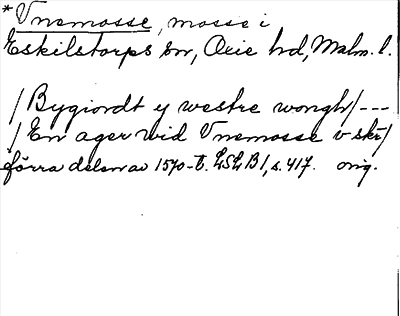 *Vnemosse, mosse i
Eskilstorps sn, Oxie hd, Malm. l.
/Bygiordt y westre wongh/---
/En ager wid Vnemosse v ski/
förra delen av 1570-t. LSLB 1, s. 417. orig.